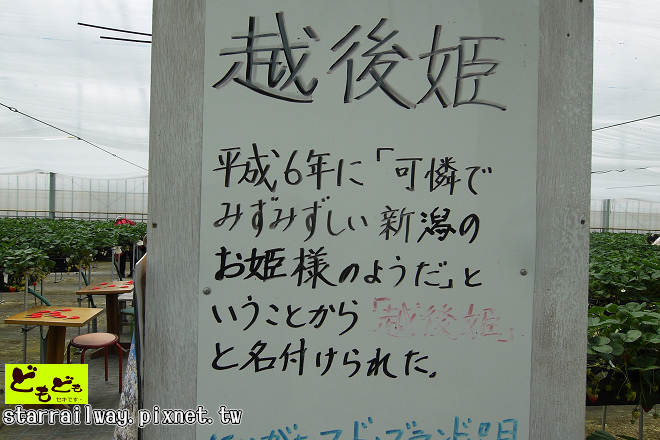 越後姫
平成6年に「可憐で
みずみずしい新潟の
お姫様のようだ」と
いうことから「越後姫」
と名付けられた。
どもども
セキです
starrailway.pixnet.tw